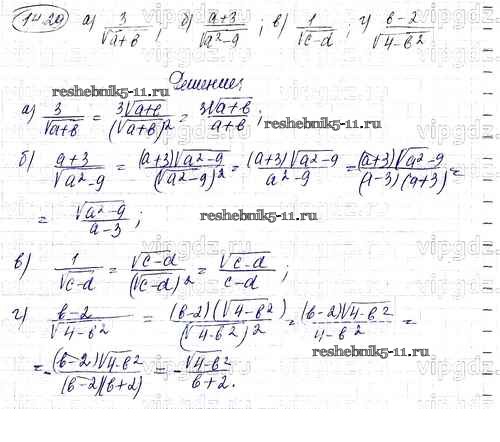 14.20 а) 3/√(a+b); б) (a+3)/√(a²-9); в) 1/√(c-d); г) (b-2)/√(4-b²)
Решение:
reshebnik5-11.ru
а) 3/√(a+b) = 3√(a+b)/(√(a+b))² = 3√(a+b)/(a+b);
reshebnik5-11.ru
б) (a+3)/√(a²-9) = (a+3)√(a²-9)/(√(a²-9))² = (a+3)√(a²-9)/(a²-9) = (a+3)√(a²-9)/((a-3)(a+3)) =
= √(a²-9)/(a-3);
reshebnik5-11.ru
в) 1/√(c-d) = √(c-d)/(√(c-d))² = √(c-d)/(c-d);
г) (b-2)/√(4-b²) = (b-2)(√(4-b²))/(√(4-b²))² = (b-2)√(4-b²)/(4-b²) =
= -(b-2)√(4-b²)/((b-2)(b+2)) = -√(4-b²)/(b+2).
reshebnik5-11.ru
vipgdz.ru